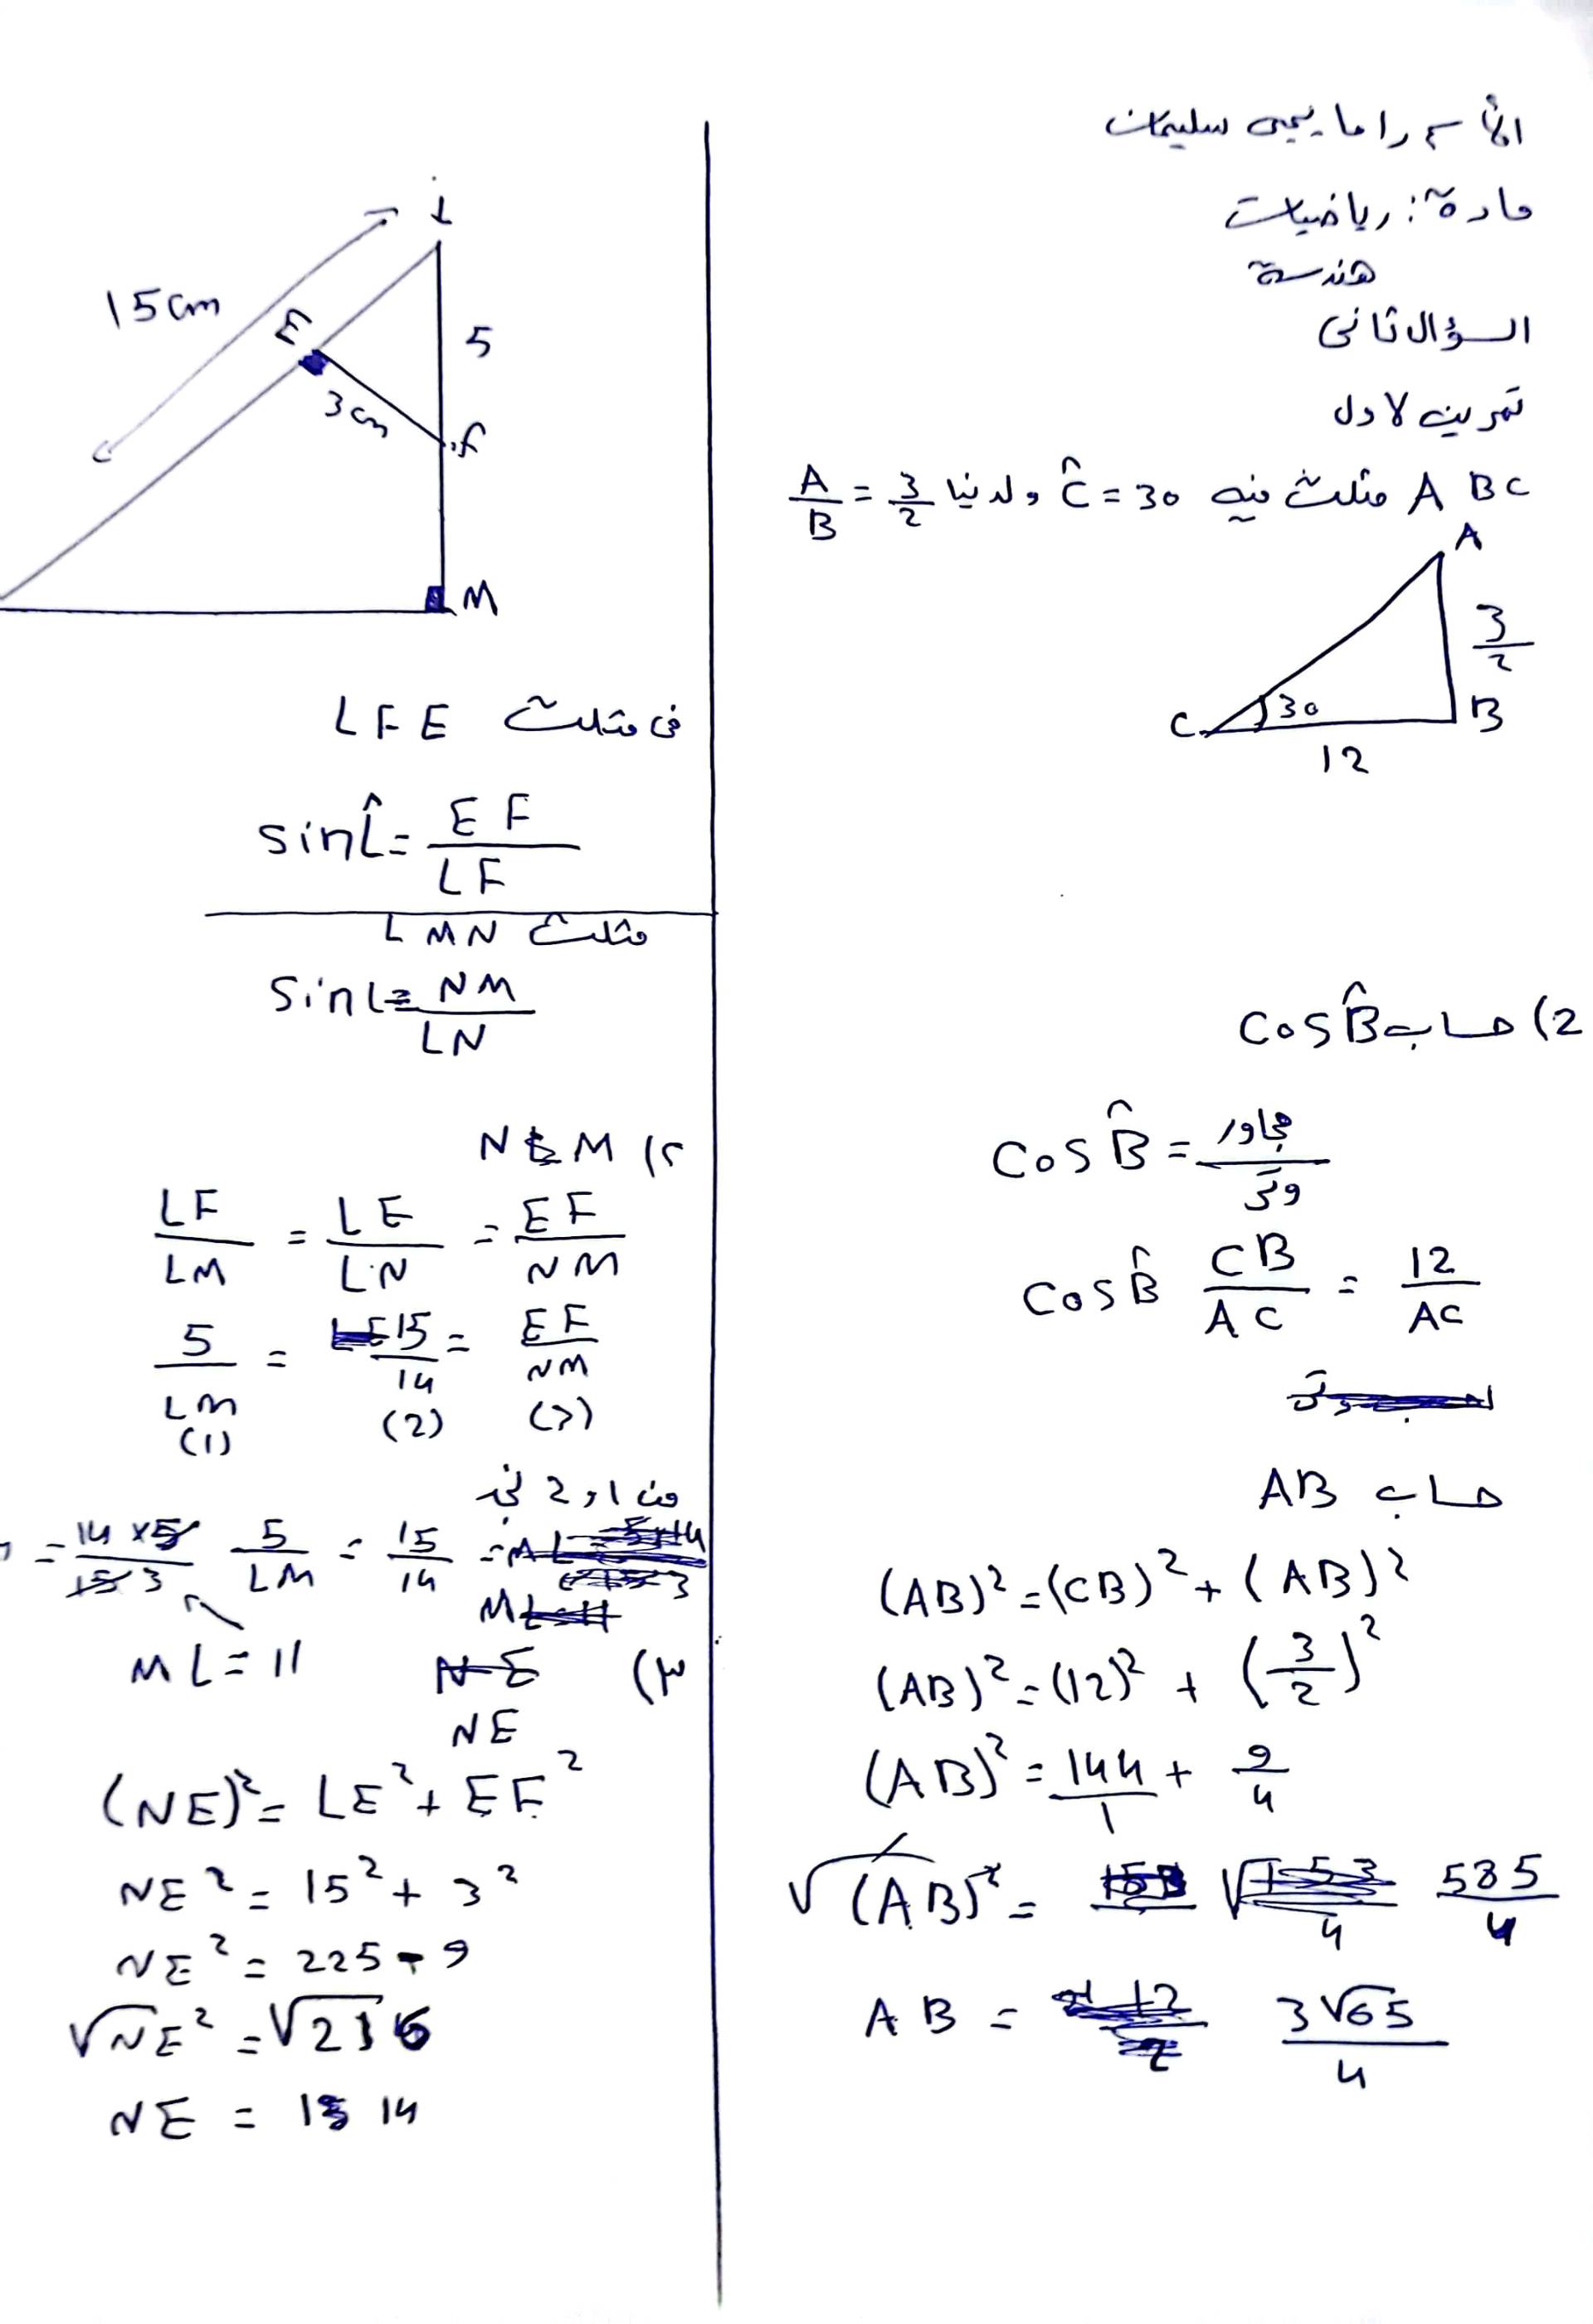 الأسم راما يحيى سليمان
مادة: رياضيات
هندسة
السؤال ثانى
تمرين لاول
A BC مثلث فيه Ĉ = 30 ولدنيا A/B = 3/2
A
3/2
30
C
B
12
2) حساب Cos B̂
Cos B̂ = مجاور/وتر
Cos B̂ CB/AC = 12/AC
حساب AB
(AB)² = (CB)² + (AB)²
(AB)² = (12)² + (3/2)²
(AB)² = 144/1 + 9/4
√(AB)² = 585/4
AB = 3√65/4
L
15 cm
E
5
3 cm
F
M
فى مثلث LFE
sin L̂ = EF/LF
مثلث LMN
Sin L = NM/LN
٢) N M
LF/LM = LE/LN = EF/NM
5/LM = 15/14 = EF/NM
(1) (2) (3)
من 1 و 2 نجد
5/LM = 15/14
= 14 × 5/15 3
ML = 11
٣)
NE
(NE)² = LE² + EF²
NE² = 15² + 3²
NE² = 225 - 9
√NE² = √216
NE = 14